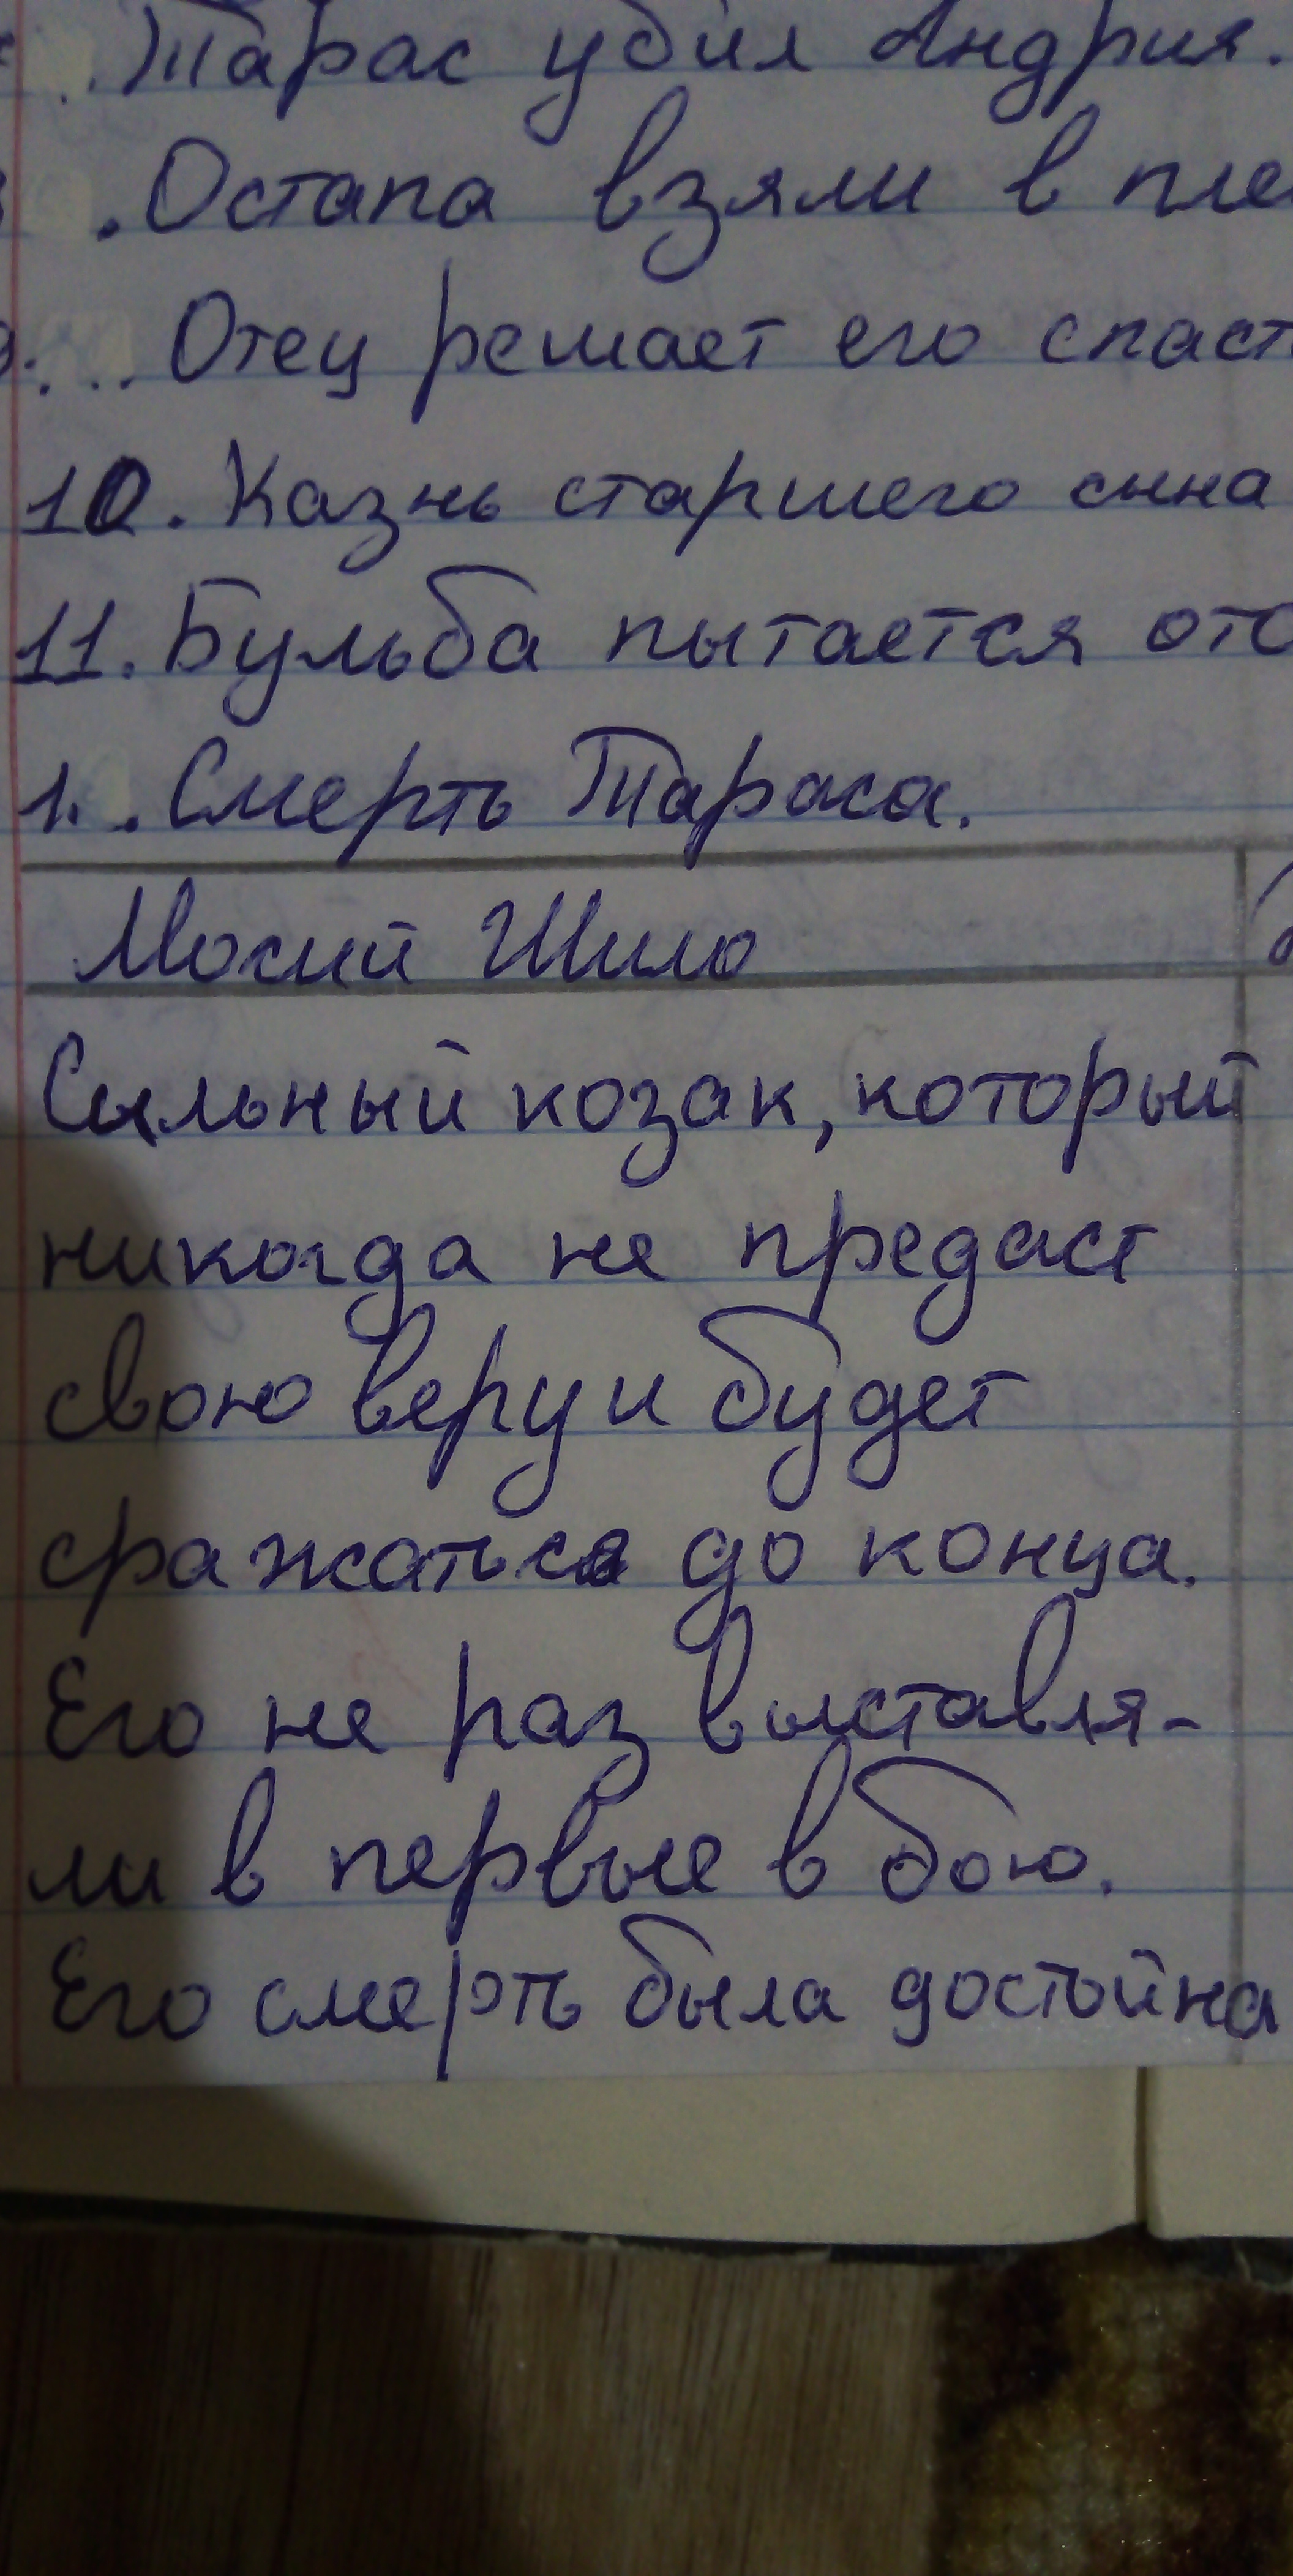 Тарас убил Андрия.
.Остапа взяли в пле
Отец решает его спаст
10. Казнь старшего сына
11. Бульба пытается ото
1. .Смерть Тараса.
Мосий Шило
Сильный козак, который
никогда не предаст
свою веру и будет
сражаться до конца.
Его не раз выставля-
ли в первые в бою.
Его смерть была достойна